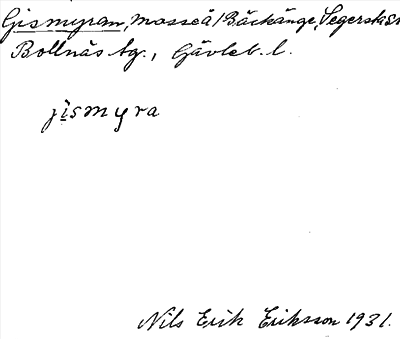 Gismyran, mosse å Bäckänge, Segersta s
Bollnäs tg., Gävleb. l.
jìsmyra
Nils Erik Eriksson 1931.